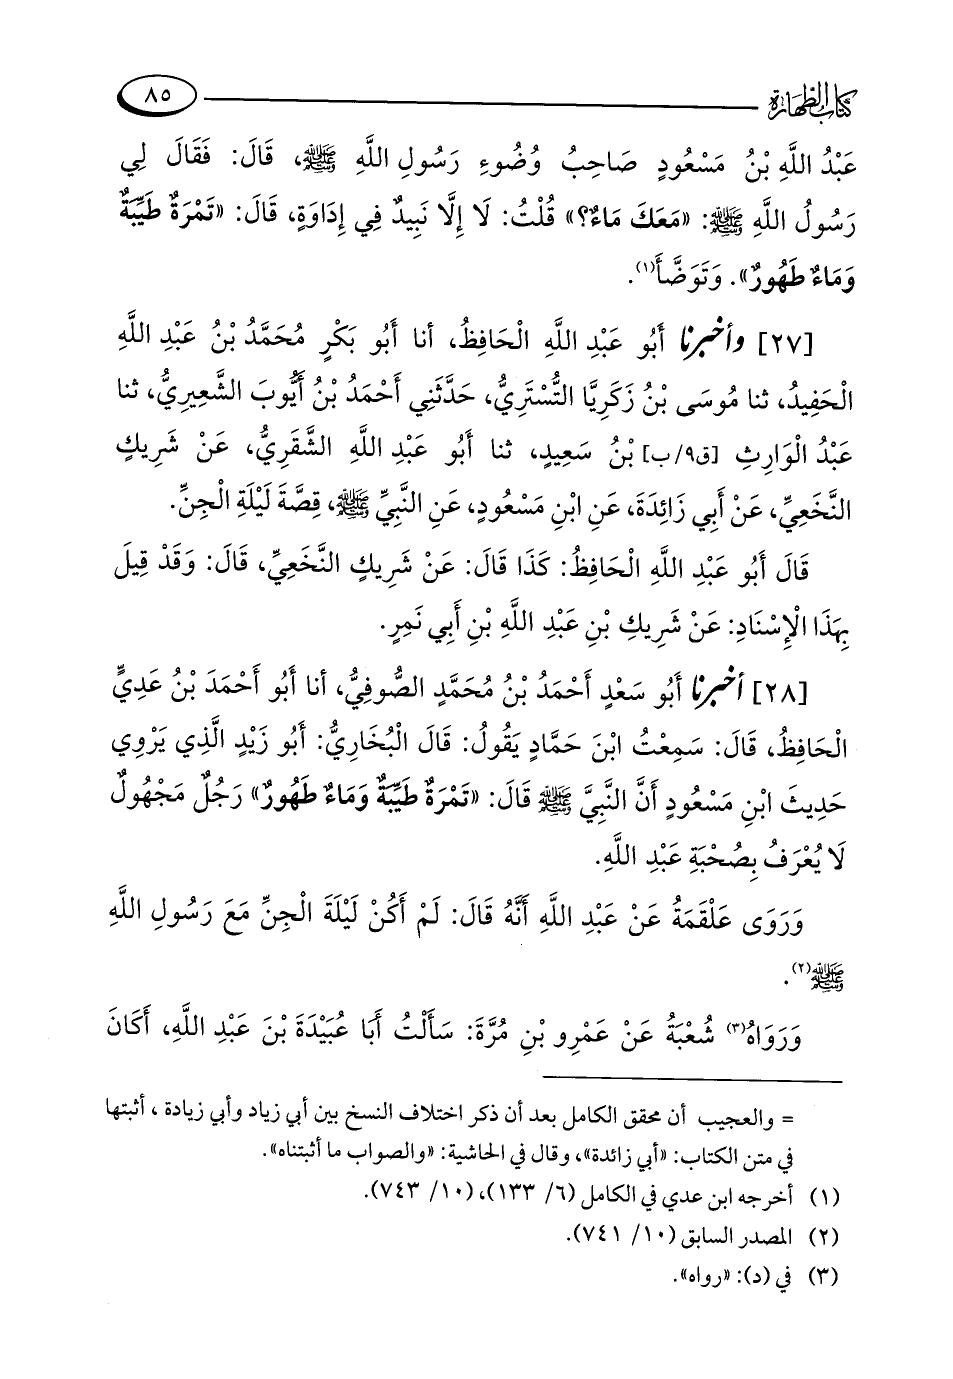 كتاب الطهارة ٨٥
عَبْدُ اللَّهِ بْنُ مَسْعُودٍ صَاحِبُ وُضُوءِ رَسُولِ اللَّهِ ﷺ، قَالَ: فَقَالَ لِي
رَسُولُ اللَّهِ ﷺ: «مَعَكَ مَاءٌ؟» قُلْتُ: لَا إِلَّا نَبِيدٌ فِي إِدَاوَةٍ، قَالَ: «تَمْرَةٌ طَيِّبَةٌ
وَمَاءٌ طَهُورٌ». وَتَوَضَّأَ(١).
[٢٧] وأخبرنا أَبُو عَبْدِ اللَّهِ الْحَافِظُ، أنا أَبُو بَكْرٍ مُحَمَّدُ بْنُ عَبْدِ اللَّهِ
الْحَفِيدُ، ثنا مُوسَى بْنُ زَكَرِيَّا التُّسْتَرِيُّ، حَدَّثَنِي أَحْمَدُ بْنُ أَيُّوبَ الشَّعِيرِيُّ، ثنا
عَبْدُ الْوَارِثِ [ق٩/ب] بْنُ سَعِيدٍ، ثنا أَبُو عَبْدِ اللَّهِ الشَّقَرِيُّ، عَنْ شَرِيكٍ
النَّخَعِيِّ، عَنْ أَبِي زَائِدَةَ، عَنِ ابْنِ مَسْعُودٍ، عَنِ النَّبِيِّ ﷺ، قِصَّةَ لَيْلَةِ الْجِنِّ.
قَالَ أَبُو عَبْدِ اللَّهِ الْحَافِظُ: كَذَا قَالَ: عَنْ شَرِيكٍ النَّخَعِيِّ، قَالَ: وَقَدْ قِيلَ
بِهَذَا الْإِسْنَادِ: عَنْ شَرِيكِ بْنِ عَبْدِ اللَّهِ بْنِ أَبِي نَمِرٍ.
[٢٨] أخبرنا أَبُو سَعْدٍ أَحْمَدُ بْنُ مُحَمَّدٍ الصُّوفِيُّ، أنا أَبُو أَحْمَدَ بْنُ عَدِيٍّ
الْحَافِظُ، قَالَ: سَمِعْتُ ابْنَ حَمَّادٍ يَقُولُ: قَالَ الْبُخَارِيُّ: أَبُو زَيْدٍ الَّذِي يَرْوِي
حَدِيثَ ابْنِ مَسْعُودٍ أَنَّ النَّبِيَّ ﷺ قَالَ: «تَمْرَةٌ طَيِّبَةٌ وَمَاءٌ طَهُورٌ» رَجُلٌ مَجْهُولٌ
لَا يُعْرَفُ بِصُحْبَةِ عَبْدِ اللَّهِ.
وَرَوَى عَلْقَمَةُ عَنْ عَبْدِ اللَّهِ أَنَّهُ قَالَ: لَمْ أَكُنْ لَيْلَةَ الْجِنِّ مَعَ رَسُولِ اللَّهِ
ﷺ(٢).
وَرَوَاهُ(٣) شُعْبَةُ عَنْ عَمْرِو بْنِ مُرَّةَ: سَأَلْتُ أَبَا عُبَيْدَةَ بْنَ عَبْدِ اللَّهِ، أَكَانَ
= والعجيب أن محقق الكامل بعد أن ذكر اختلاف النسخ بين أبي زياد وأبي زيادة، أثبتها
في متن الكتاب: «أبي زائدة»، وقال في الحاشية: «والصواب ما أثبتناه».
(١) أخرجه ابن عدي في الكامل (٦/ ١٣٣)، (١٠/ ٧٤٣).
(٢) المصدر السابق (١٠/ ٧٤١).
(٣) في (د): «رواه».